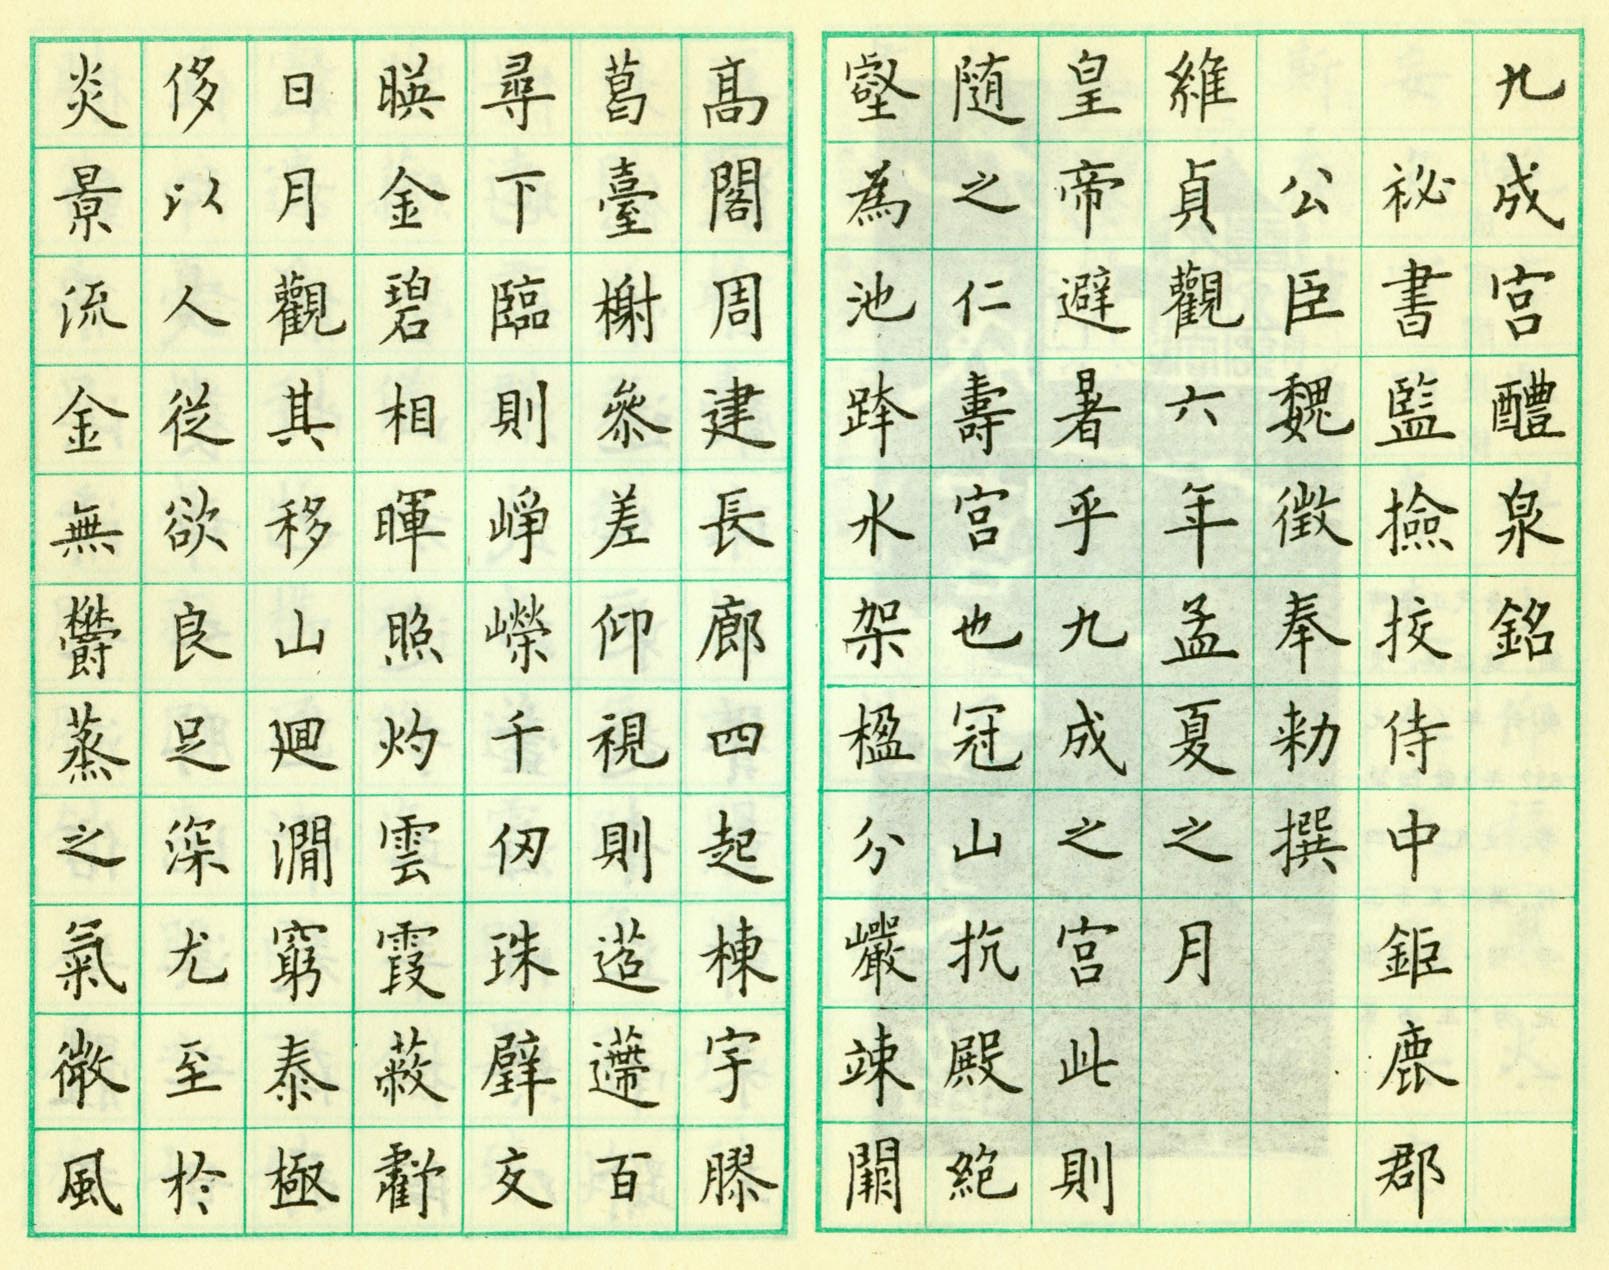 九成宮醴泉銘
祕書監撿挍侍中鉅鹿郡
公臣魏徵奉勑撰
維貞觀六年孟夏之月
皇帝避暑乎九成之宮此則
随之仁壽宮也冠山抗殿絕
壑為池跨水架楹分巖竦闕
髙閣周建長廊四起棟宇膠
葛臺榭叅差仰視則迢遰百
尋下臨則崢嶸千仞珠璧交
暎金碧相暉照灼雲霞蔽虧
日月觀其移山迴澗窮泰極
侈以人從欲良足深尤至於
炎景流金無欝蒸之氣微風